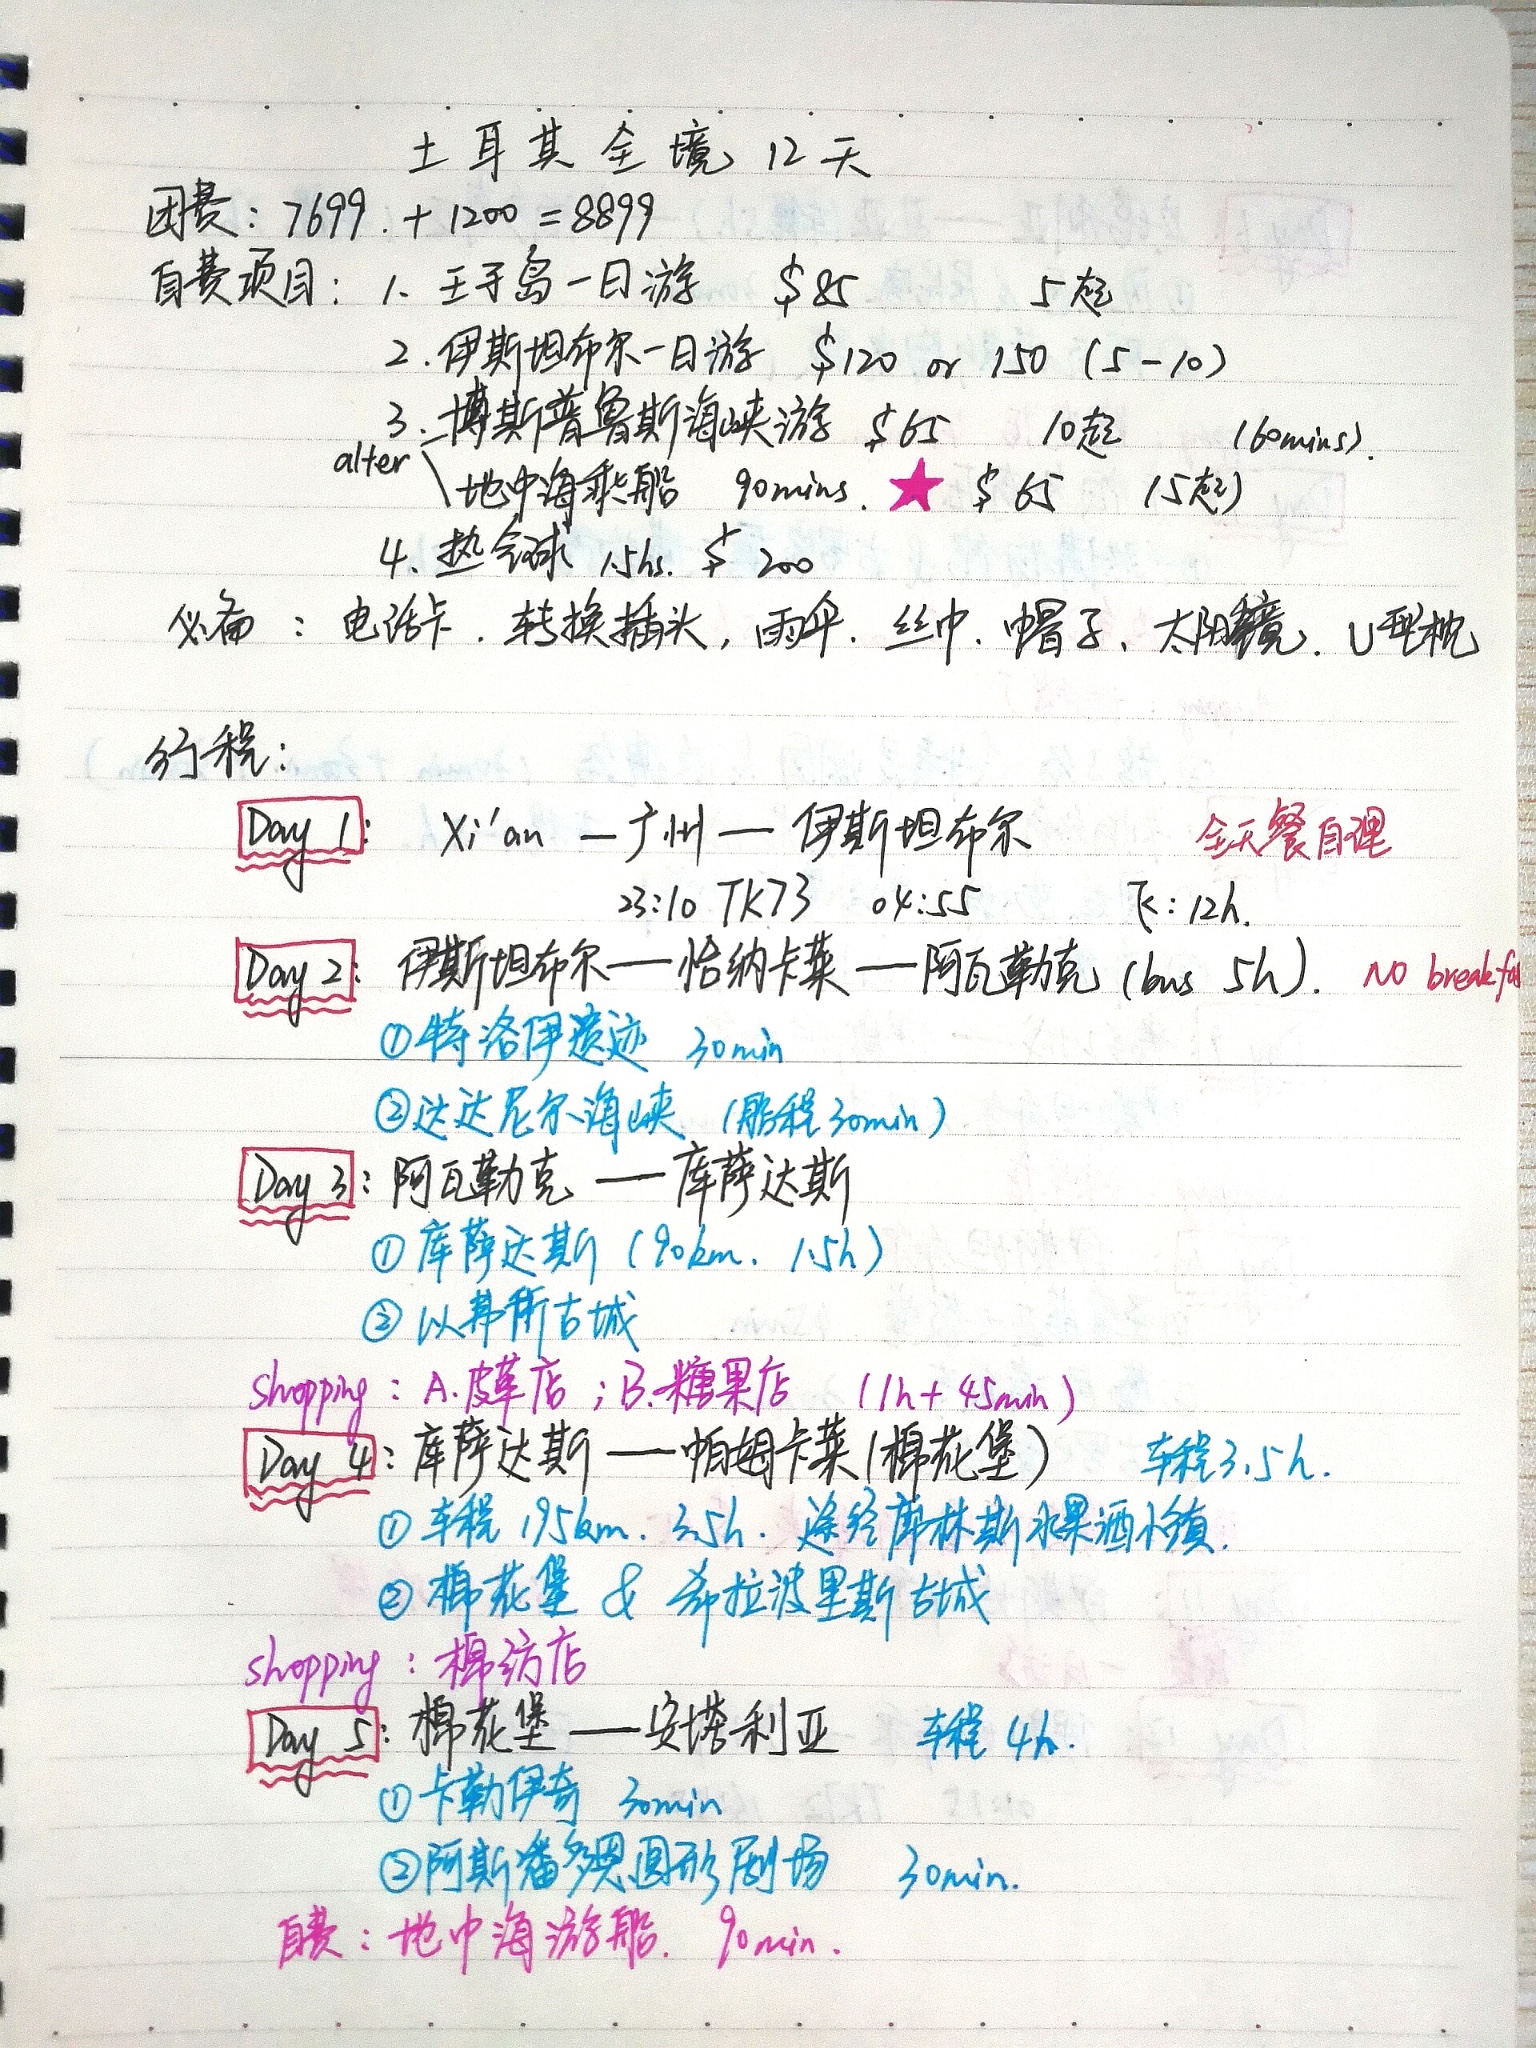 土耳其全境12天
团费：7699.+1200=8899
自费项目：1、王子岛一日游 $85 5起
2.伊斯坦布尔一日游 $120 or 150 (5-10)
3.博斯普鲁斯海峡游 $65 10起 (60mins).
alter 地中海乘船 90mins. ★ $65 15起)
4、热气球 1.5hs. $200
必备：电话卡.转换插头，雨伞.丝巾、帽子、太阳镜.U型枕
行程：
Day 1: Xi'an—广州—伊斯坦布尔 全天餐自理
23:10 TK73 04:55 飞：12h.
Day 2: 伊斯坦布尔—恰纳卡莱—阿瓦勒克(bus 5h). NO breakfas
①特洛伊遗迹 30min
②达达尼尔海峡 (船程30min)
Day 3: 阿瓦勒克—库萨达斯
①库萨达斯(90km. 1.5h)
②以弗所古城
shopping：A.皮革店；B.糖果店 (1h+45min)
Day 4: 库萨达斯—帕姆卡莱(棉花堡) 车程3.5h.
①车程195km. 3.5h. 途经库林斯水果酒小镇.
②棉花堡 & 希拉波里斯古城
shopping：棉纺店
Day 5: 棉花堡—安塔利亚 车程4h.
①卡勒伊奇 30min
②阿斯潘多思圆形剧场 30min.
自费：地中海游船. 90min.